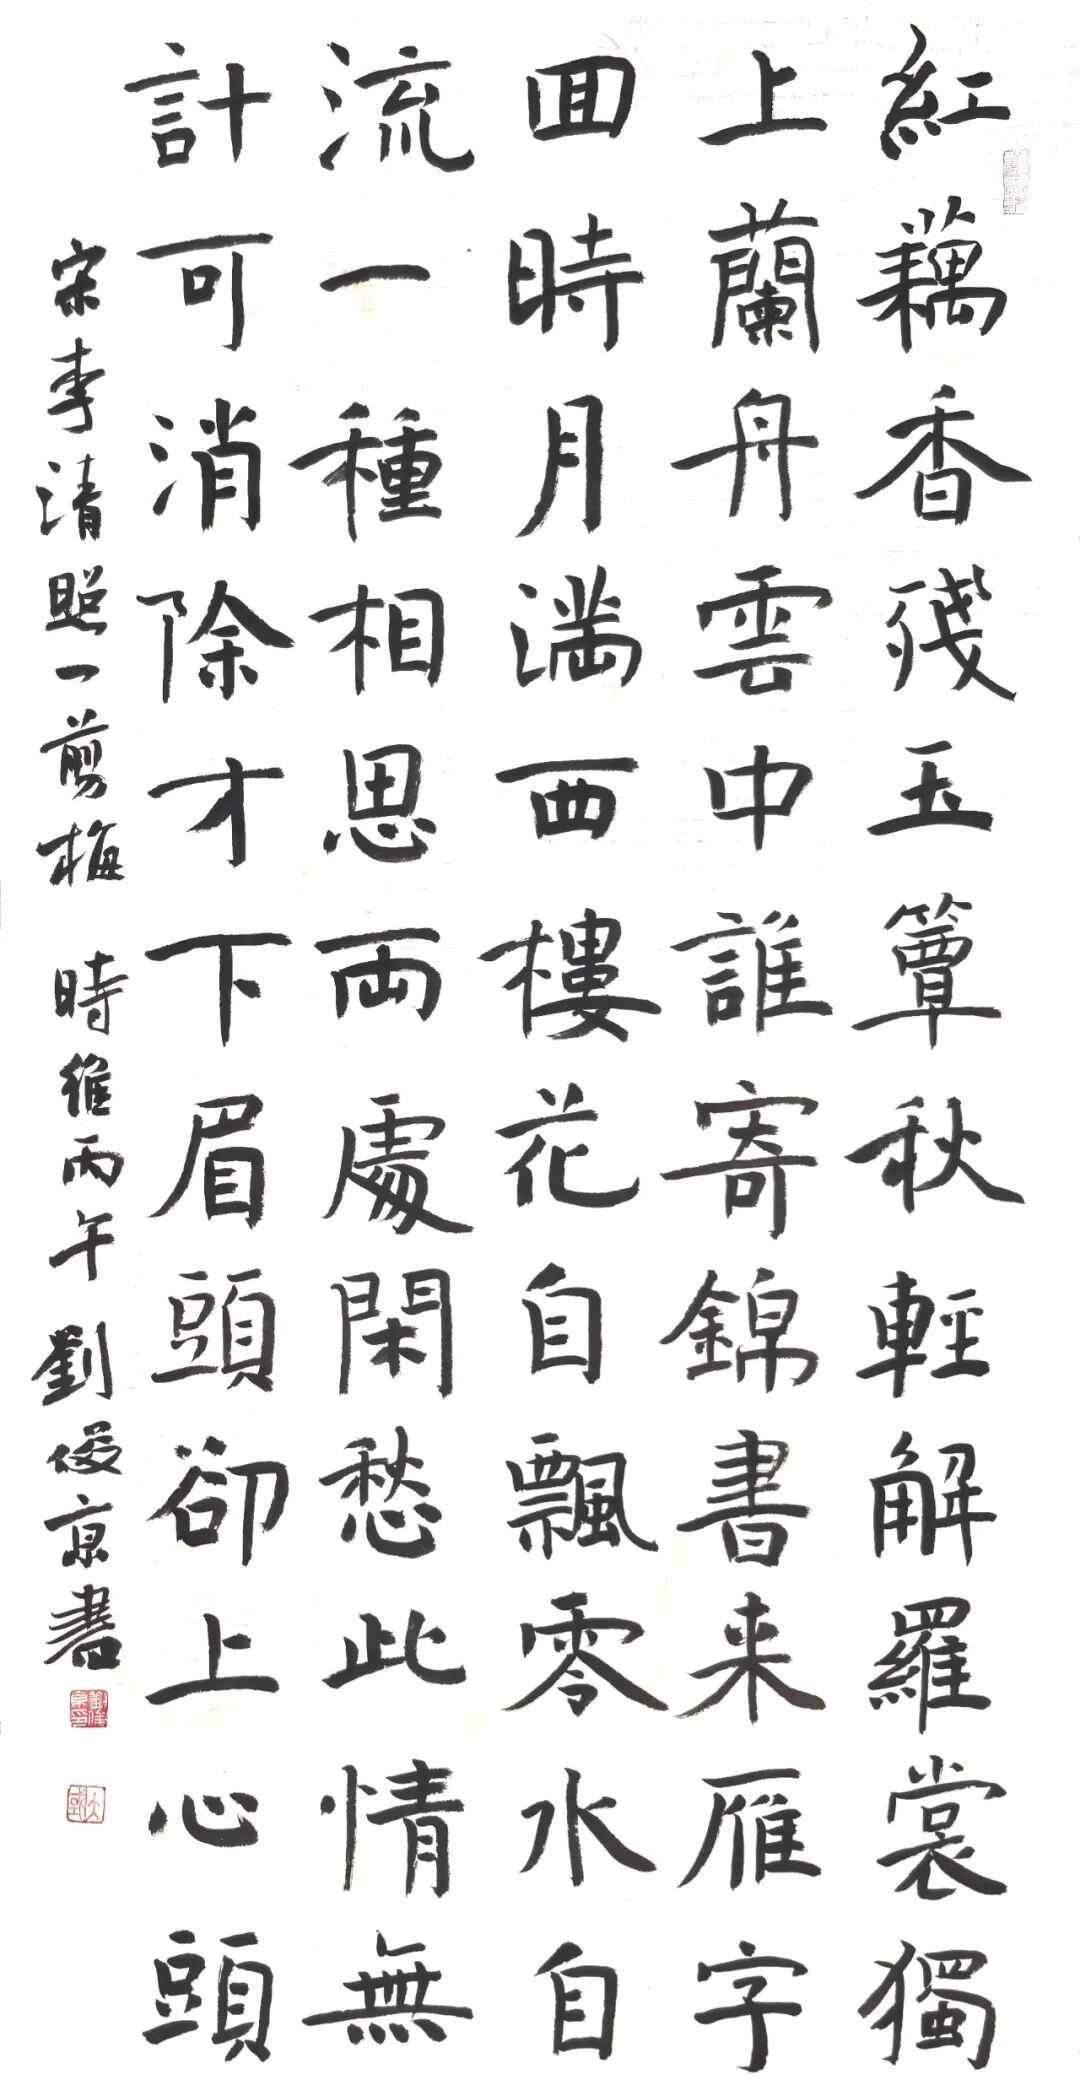 紅藕香殘玉簟秋輕解羅裳獨
上蘭舟雲中誰寄錦書来雁字
回時月滿西樓花自飄零水自
流一種相思兩處閑愁此情無
計可消除才下眉頭卻上心頭
宋李清照一剪梅 時維丙午 劉俊京書